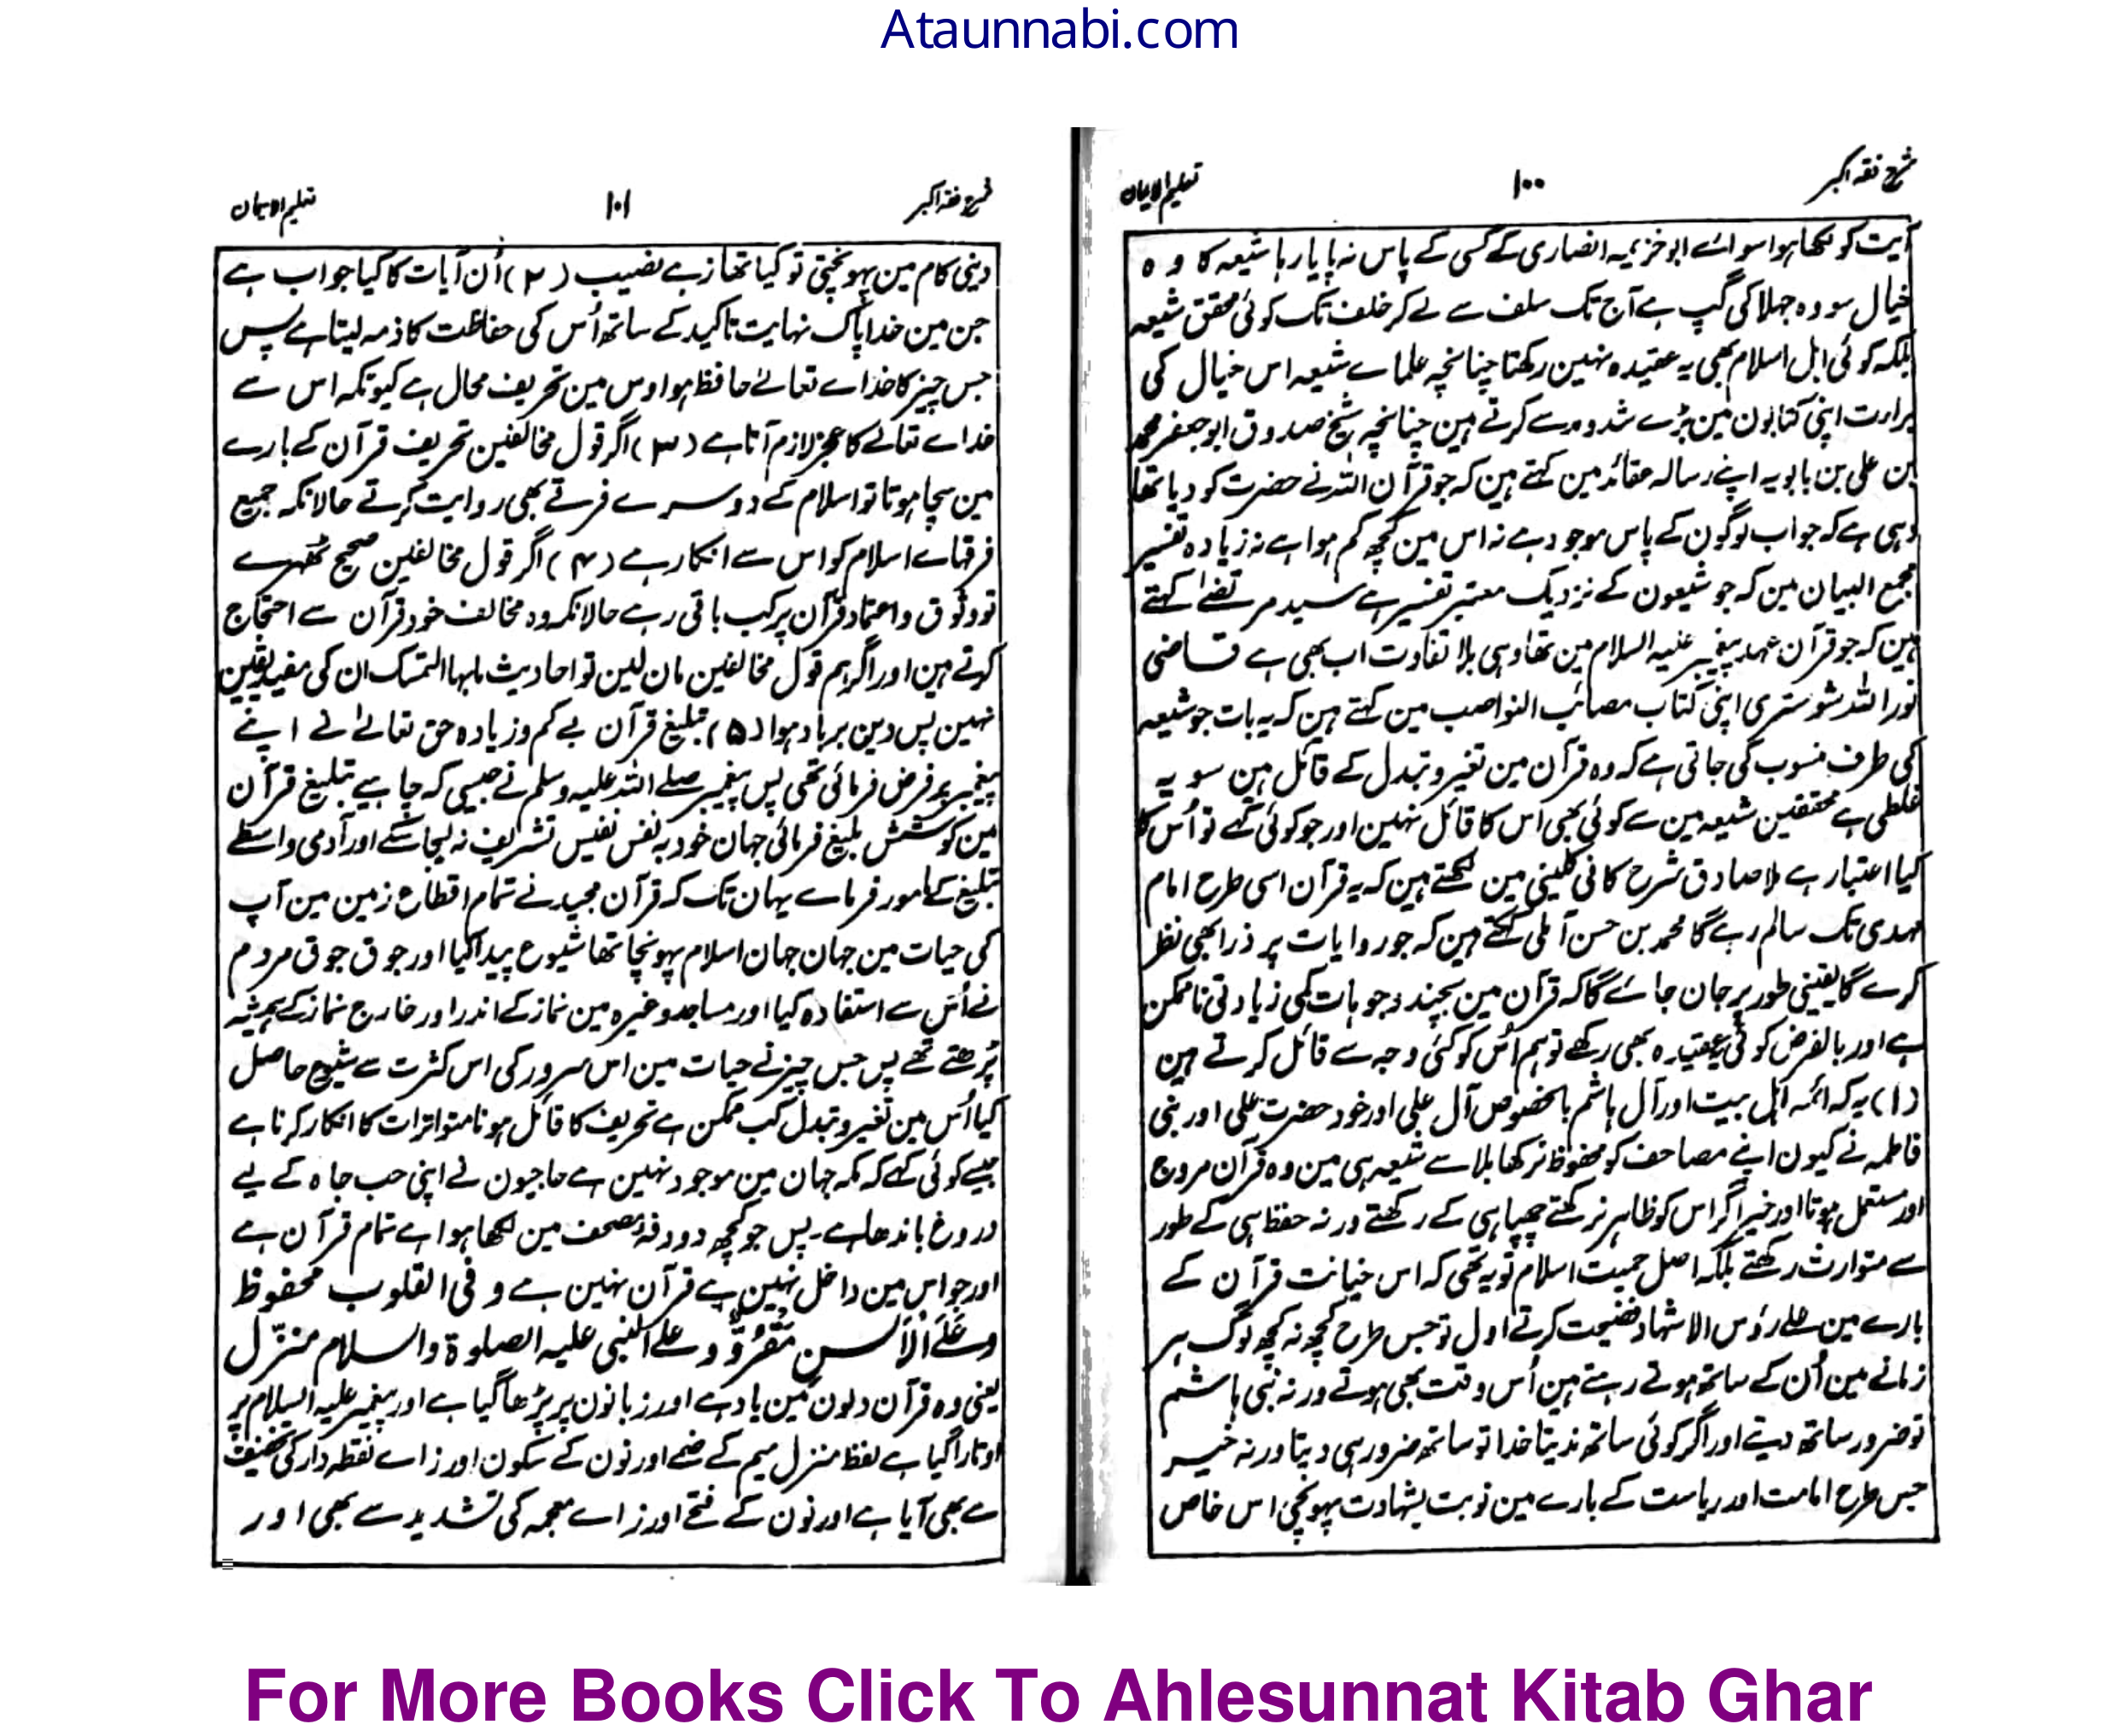 Ataunnabi.com
شرح فقہ اکبر
۱۰۰
تعلیم الایمان
آیت کو لکھا ہوا سوائے ابو خزیمہ انصاری کے کسی کے پاس نہ پایا رہا شیعہ کا وہ
خیال سو وہ جہلا کی گپ ہے آج تک سلف سے لے کر خلف تک کوئی محقق شیعہ
بلکہ کوئی اہل اسلام بھی یہ عقیدہ نہین رکھتا چنانچہ علماے شیعہ اس خیال کی
براءت اپنی کتابون مین بڑے شد و مد سے کرتے ہین چنانچہ شیخ صدوق ابو جعفر محمد
بن علی بن بابویہ اپنے رسالہ عقائد مین کہتے ہین کہ جو قرآن اللہ نے حضرت کو دیا تھا
وہی ہے کہ جو اب لوگون کے پاس موجود ہے نہ اس مین کچھ کم ہوا ہے نہ زیادہ تفسیر
مجمع البیان مین کہ جو شیعون کے نزدیک معتبر تفسیر ہے سید مرتضےٰ کہتے
ہین کہ جو قرآن عہد پیغمبر علیہ السلام مین تھا وہی بلا تفاوت اب بھی ہے قاضی
نور اللہ شوستری اپنی کتاب مصائب النواصب مین کہتے ہین کہ یہ بات جو شیعہ
کی طرف منسوب کی جاتی ہے کہ وہ قرآن مین تغیر و تبدل کے قائل ہین سو یہ
غلطی ہے محققین شیعہ مین سے کوئی بھی اس کا قائل نہین اور جو کوئی کہے تو اُس کا
کیا اعتبار ہے ملا صادق شرح کافی کلینی مین لکھتے ہین کہ یہ قرآن اسی طرح امام
مہدی تک سالم رہے گا محمد بن حسن آملی کہتے ہین کہ جو روایات پر ذرا بھی نظر
کرے گا یقینی طور پر جان جائے گا کہ قرآن مین بچند وجوہات کمی زیادتی ناممکن
ہے اور بالفرض کوئی یہ عقیدہ بھی رکھے تو ہم اُس کو کئی وجہ سے قائل کرتے ہین
(۱) یہ کہ ائمہ اہل بیت اور آل ہاشم بالخصوص آل علی اور خود حضرت علی اور بنی
فاطمہ نے کیون اپنے مصاحف کو محفوظ نہ رکھا بلا سے شیعہ ہی مین وہ قرآن مروج
اور مستعمل ہوتا اور خیر اگر اس کو ظاہر نہ رکھتے چھپا ہی کے رکھتے ورنہ حفظ ہی کے طور
سے متوارث رکھتے بلکہ اصل حمیت اسلام تو یہ تھی کہ اس خیانت قرآن کے
بارے مین علے رؤس الاشہاد فضیحت کرتے اول تو جس طرح کچھ نہ کچھ لوگ ہر
زمانے مین اُن کے ساتھ ہوتے رہتے ہین اُس وقت بھی ہوتے ورنہ بنی ہاشم
تو ضرور ساتھ دیتے اور اگر کوئی ساتھ ندیتا خدا تو ساتھ ضرور ہی دیتا ورنہ خیر
جس طرح امامت اور ریاست کے بارے مین نوبت بشہادت پہونچی اس خاص
شرح فقہ اکبر
۱۰۱
تعلیم الایمان
دینی کام مین پہونچتی تو کیا تھا زہے نصیب (۲) اُن آیات کا کیا جواب ہے
جن مین خدا پاک نہایت تاکید کے ساتھ اُس کی حفاظت کا ذمہ لیتا ہے پس
جس چیز کا خداے تعالےٰ حافظ ہوا وس مین تحریف محال ہے کیونکہ اس سے
خداے تعالےٰ کا عجز لازم آتا ہے (۳) اگر قول مخالفین تحریف قرآن کے بارے
مین سچا ہوتا تو اسلام کے دوسرے فرقے بھی روایت کرتے حالانکہ جمیع
فرقہاے اسلام کو اس سے انکار ہے (۴) اگر قول مخالفین صحیح ٹھہرے
تو وثوق و اعتماد قرآن پر کب باقی رہے حالانکہ وہ مخالف خود قرآن سے احتجاج
کرتے ہین اور اگر ہم قول مخالفین مان لین تو احادیث مابہا التمسک ان کی مفید یقین
نہین پس دین برباد ہوا (۵) تبلیغ قرآن بے کم و زیادہ حق تعالےٰ نے اپنے
پیغمبر پر فرض فرمائی تھی پس پیغمبر صلے اللہ علیہ وسلم نے جیسی کہ چاہیے تبلیغ قرآن
مین کوشش بلیغ فرمائی جہان خود بہ نفس نفیس تشریف نہ لیجا سکے اور آدمی واسطے
تبلیغ کے مامور فرماے یہان تک کہ قرآن مجید نے تمام اقطاع زمین مین آپ
کی حیات مین جہان جہان اسلام پہونچا تھا شیوع پیدا کیا اور جوق جوق مردم
نے اُس سے استفادہ کیا اور مساجد وغیرہ مین نماز کے اندر اور خارج نماز کے ہمیشہ
پڑھتے تھے پس جس چیز نے حیات مین اس سرور کی اس کثرت سے شیوع حاصل
کیا اُس مین تغیر و تبدل کب ممکن ہے تحریف کا قائل ہونا متواترات کا انکار کرنا ہے
جیسے کوئی کہے کہ مکہ جہان مین موجود نہین ہے حاجیون نے اپنی حب جاہ کے لیے
دروغ باندھا ہے۔ پس جو کچھ دو دفۂ مصحف مین لکھا ہوا ہے تمام قرآن ہے
اور جو اس مین داخل نہین ہے قرآن نہین ہے و فی القلوب محفوظ
وَعَلَے الْاَلسن مَقْرُوٌّ و علے النبی علیہ الصلوۃ والسلام منزّل
یعنی وہ قرآن دلون مین یاد ہے اور زبانون پر پڑھا گیا ہے اور پیغمبر علیہ السلام پر
اوتارا گیا ہے لفظ منزل میم کے ضمے اور نون کے سکون اور زاے نقطہ دار کی تخفیف
سے بھی آیا ہے اور نون کے فتحے اور زاے معجمہ کی تشدید سے بھی اور
For More Books Click To Ahlesunnat Kitab Ghar